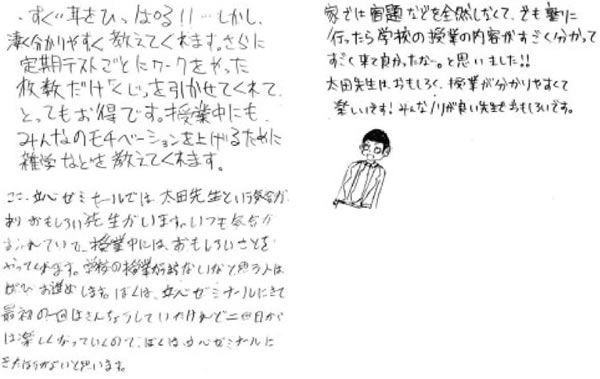 すぐ耳をひっぱる!!…しかし、
凄く分かりやすく教えてくれます。さらに
定期テストごとにワークをやった
枚数だけくじを引かせてくれて、
とってもお得です。授業中にも、
みんなのモチベーションを上げるために
雑学などを教えてくれます。
ここ、立心ゼミナールでは、太田先生という気合が
おもしろい先生がいます。いつも気合が
授業中には、おもしろいことを
やってくれます。学校の授業が な と思う人は
ぜひお進めします。ぼくは、立心ゼミナールにきて
最初の一回はきんちょうしていたけれど二回目から
は楽しくなっていくので、ぼくは立心ゼミナールに
と思います。
家では宿題などを全然しなくて、でも塾に
行ったら学校の授業の内容がすごく分かって
すごく来て良かったなー。と思いました!!
太田先生は、おもしろく、授業が分かりやすくて
楽しいです!みんなノリが良い先生もおもしろいです。